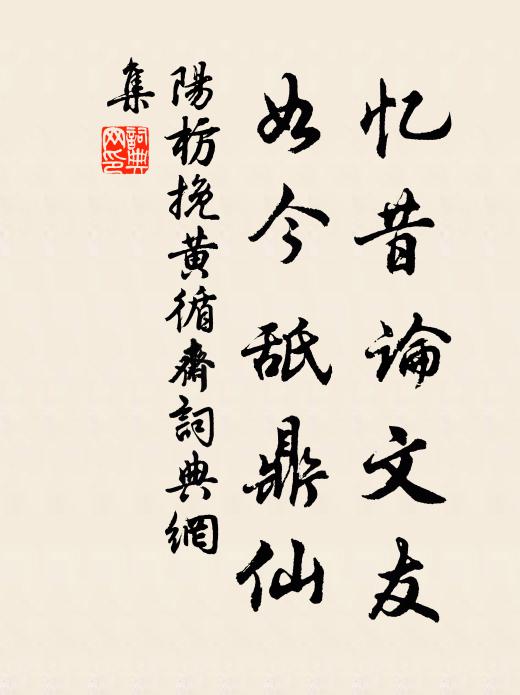 忆昔论文友
如今舐鼎仙
陽枋挽黄循齋詞典網
集
詞典網印